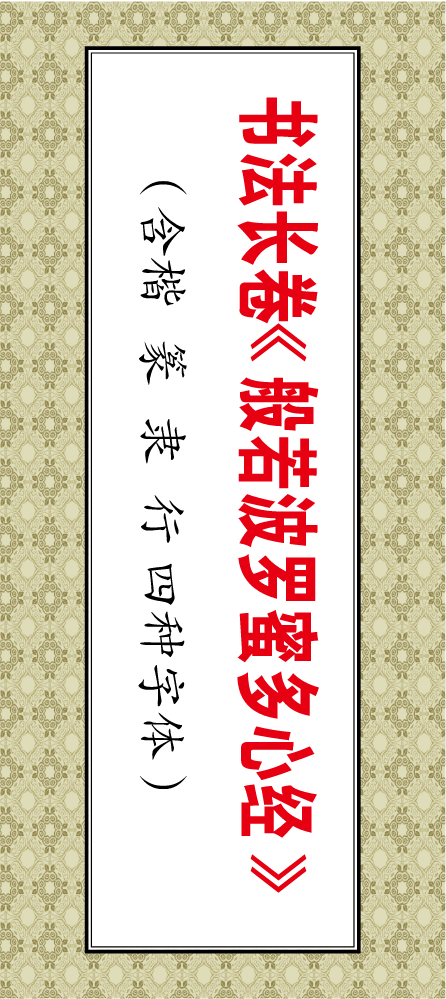 书法长卷《般若波罗蜜多心经》
（含楷 篆 隶 行四种字体）